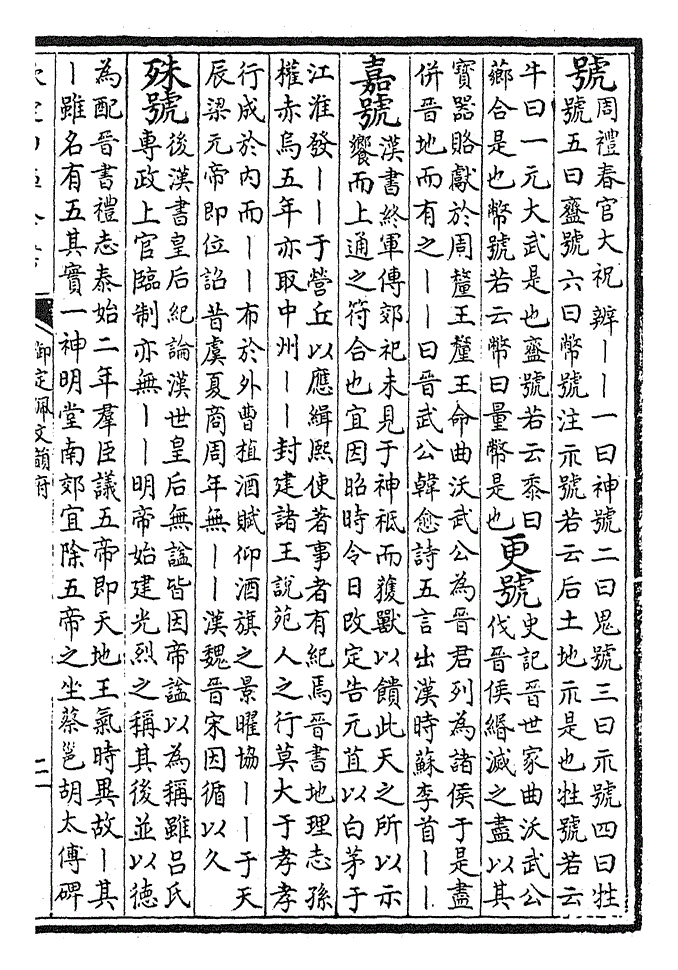 號周禮春官大祝辨丨丨一曰神號二曰鬼號三曰示號四曰牲
號五曰齍號六曰幣號注示號若云后土地示是也牲號若云
牛曰一元大武是也齍號若云黍曰
薌合是也幣號若云幣曰量幣是也
更號史記晉世家曲沃武公
伐晉侯緡滅之盡以其
寶器賂獻於周釐王釐王命曲沃武公為晉君列為諸侯于是盡
併晉地而有之丨丨曰晉武公韓愈詩五言出漢時蘇李首丨丨
嘉號漢書終軍傳郊祀未見于神祇而獲獸以饋此天之所以示
饗而上通之符合也宜因昭時令日改定告元苴以白茅于
江淮發丨丨于營丘以應緝熙使著事者有紀焉晉書地理志孫
權赤烏五年亦取中州丨丨封建諸王說苑人之行莫大于孝孝
行成於內而丨丨布於外曹植酒賦仰酒旗之景曜協丨丨于天
辰梁元帝即位詔昔虞夏商周年無丨丨漢魏晉宋因循以久
殊號後漢書皇后紀論漢世皇后無諡皆因帝諡以為稱雖呂氏
專政上官臨制亦無丨丨明帝始建光烈之稱其後並以德
為配晉書禮志泰始二年羣臣議五帝即天地王氣時異故丨其
丨雖名有五其實一神明堂南郊宜除五帝之坐蔡邕胡太傅碑
御定佩文韻府
二